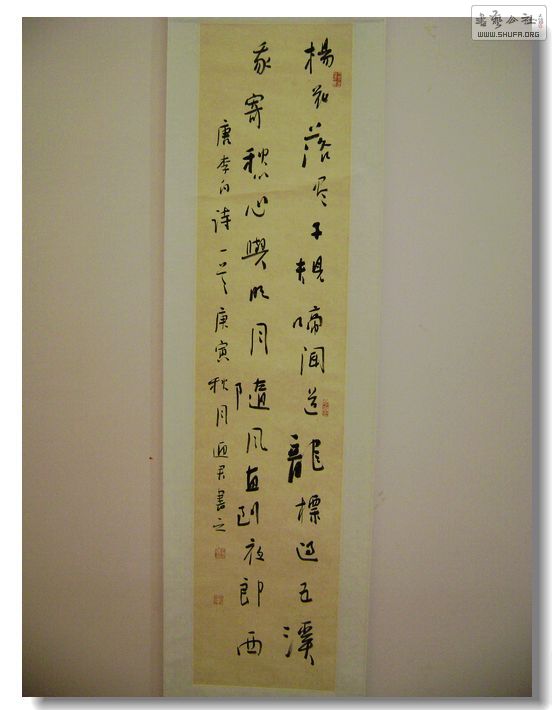 楊花落尽子規啼聞道龍標過五溪
我寄愁心與明月隨風直到夜郎西
唐李白詩一首庚寅秋月君書之
書藝公社
WWW.SHUFA.ORG